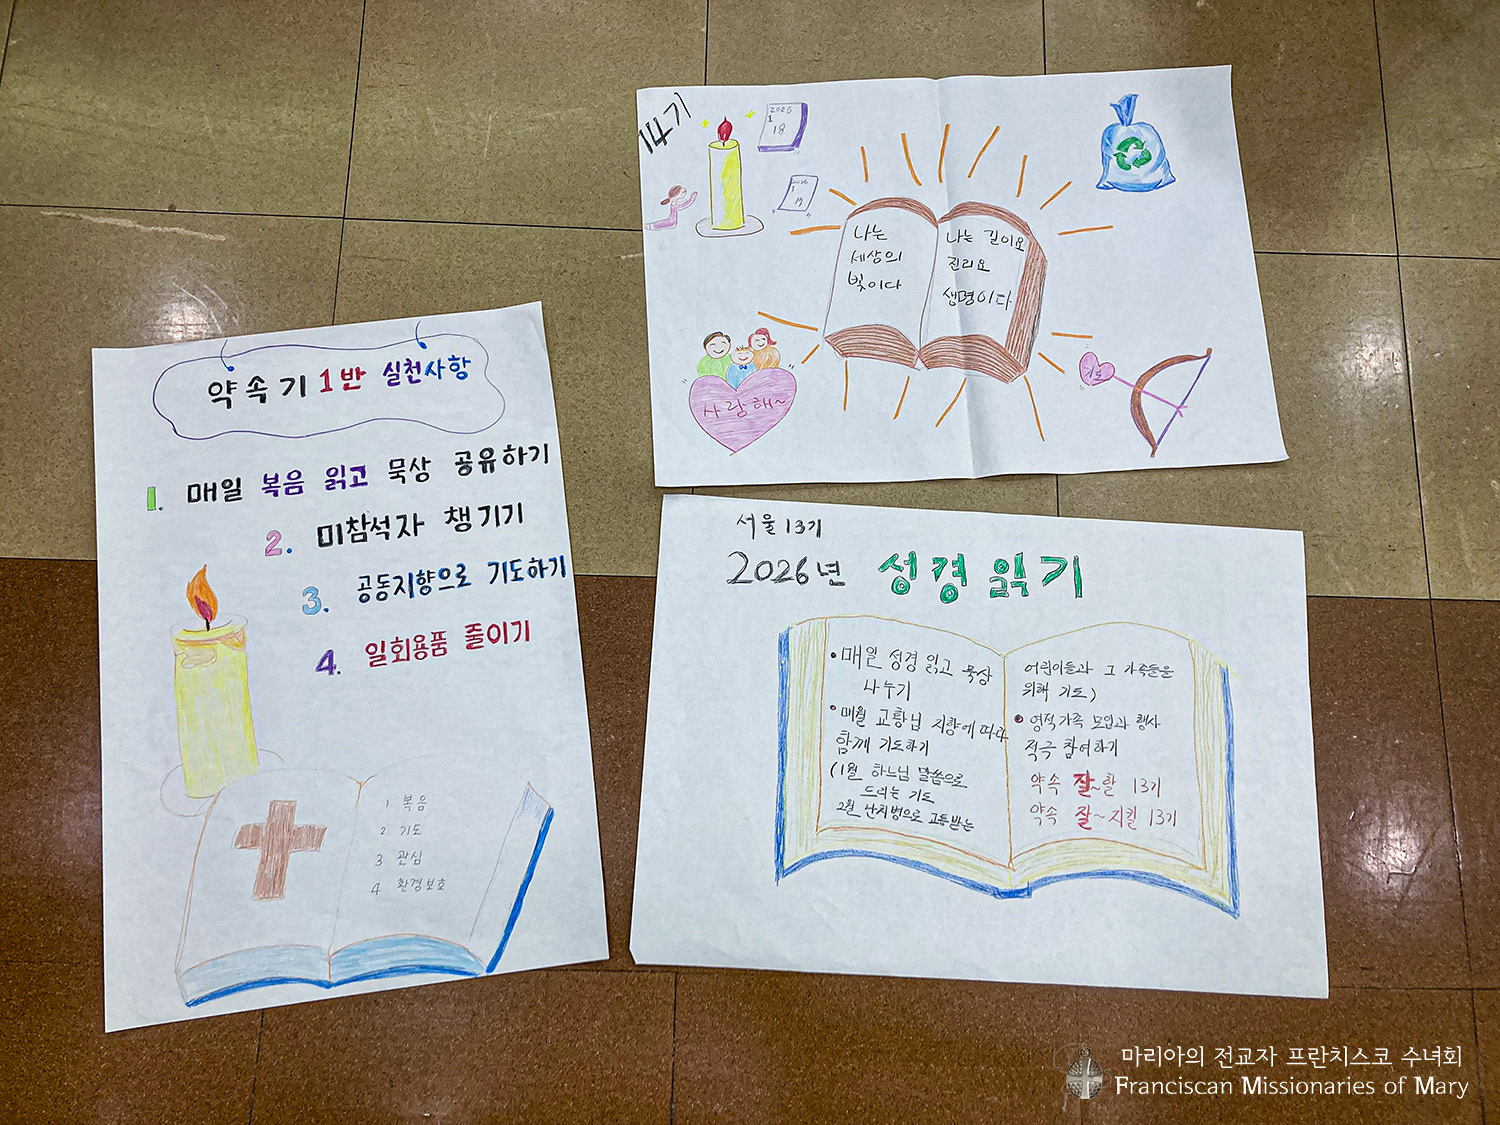 약속기 1반 실천사항
1. 매일 복음 읽고 묵상 공유하기
2. 미참석자 챙기기
3. 공동지향으로 기도하기
4. 일회용품 줄이기
1 복음
2. 기도
3 관심
4. 환경보호
14기
2026
1
18
2026
1
17
나는
세상의
빛이다
나는 길이요
진리요
생명이다
사랑해~
기도
서울 13기
2026년 성경 읽기
• 매일 성경 읽고 묵상
나누기
• 매월 교황님 지향에 따라
함께 기도하기
(1월 하느님 말씀으로
드리는 기도
2월 난치병으로 고통받는
어린이들과 그 가족들을
위해 기도)
• 영적가족 모임과 행사
적극 참여하기
약속 잘~할 13기
약속 잘~지킬 13기
마리아의 전교자 프란치스코 수녀회
Franciscan Missionaries of Mary